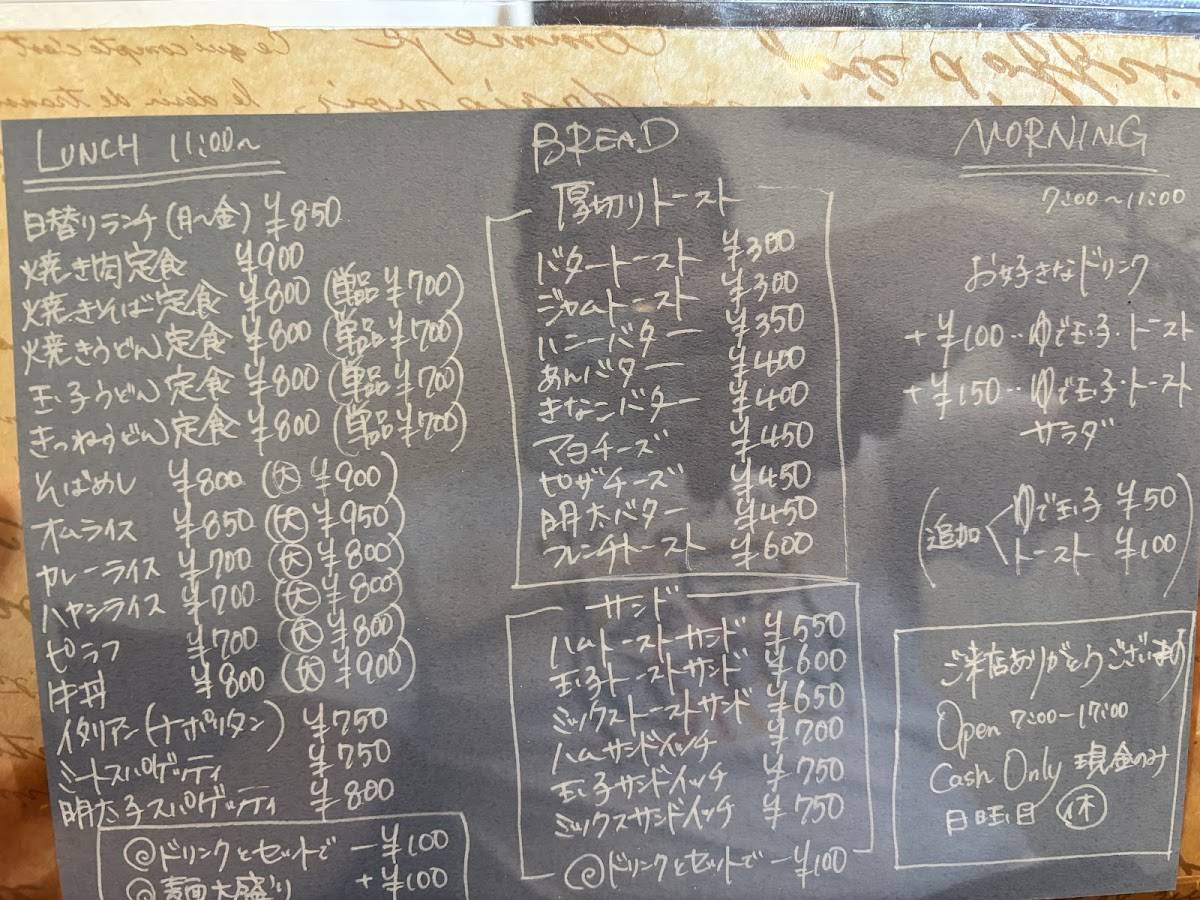 LUNCH 11:00~
日替りランチ(月~金) ¥850
焼き肉定食 ¥900
焼きそば定食 ¥800 (単品¥700)
焼きうどん定食 ¥800 (単品¥700)
玉子うどん定食 ¥800 (単品¥700)
きつねうどん定食 ¥800 (単品¥700)
そばめし ¥800 (大 ¥900)
オムライス ¥850 (大 ¥950)
カレーライス ¥700 (大 ¥800)
ハヤシライス ¥700 (大 ¥800)
ピラフ ¥700 (大 ¥800)
牛丼 ¥800 (大 ¥900)
イタリアン(ナポリタン) ¥750
ミートスパゲッティ ¥750
明太子スパゲッティ ¥800
◎ドリンクとセットで -¥100
◎麺大盛り +¥100
BREAD
厚切りトースト
バタートースト ¥300
ジャムトースト ¥300
ハニーバター ¥350
あんバター ¥400
きなこバター ¥400
マヨチーズ ¥450
ピザチーズ ¥450
明太バター ¥450
フレンチトースト ¥600
サンド
ハムトーストサンド ¥550
玉子トーストサンド ¥600
ミックストーストサンド ¥650
ハムサンドイッチ ¥700
玉子サンドイッチ ¥750
ミックスサンドイッチ ¥750
◎ドリンクとセットで -¥100
MORNING
7:00~11:00
お好きなドリンク
+¥100‥ゆで玉子・トースト
+¥150‥ゆで玉子・トースト
サラダ
(追加<ゆで玉子 ¥50
トースト ¥100)
ご来店ありがとうございます
Open 7:00-17:00
Cash Only 現金のみ
日曜日 休